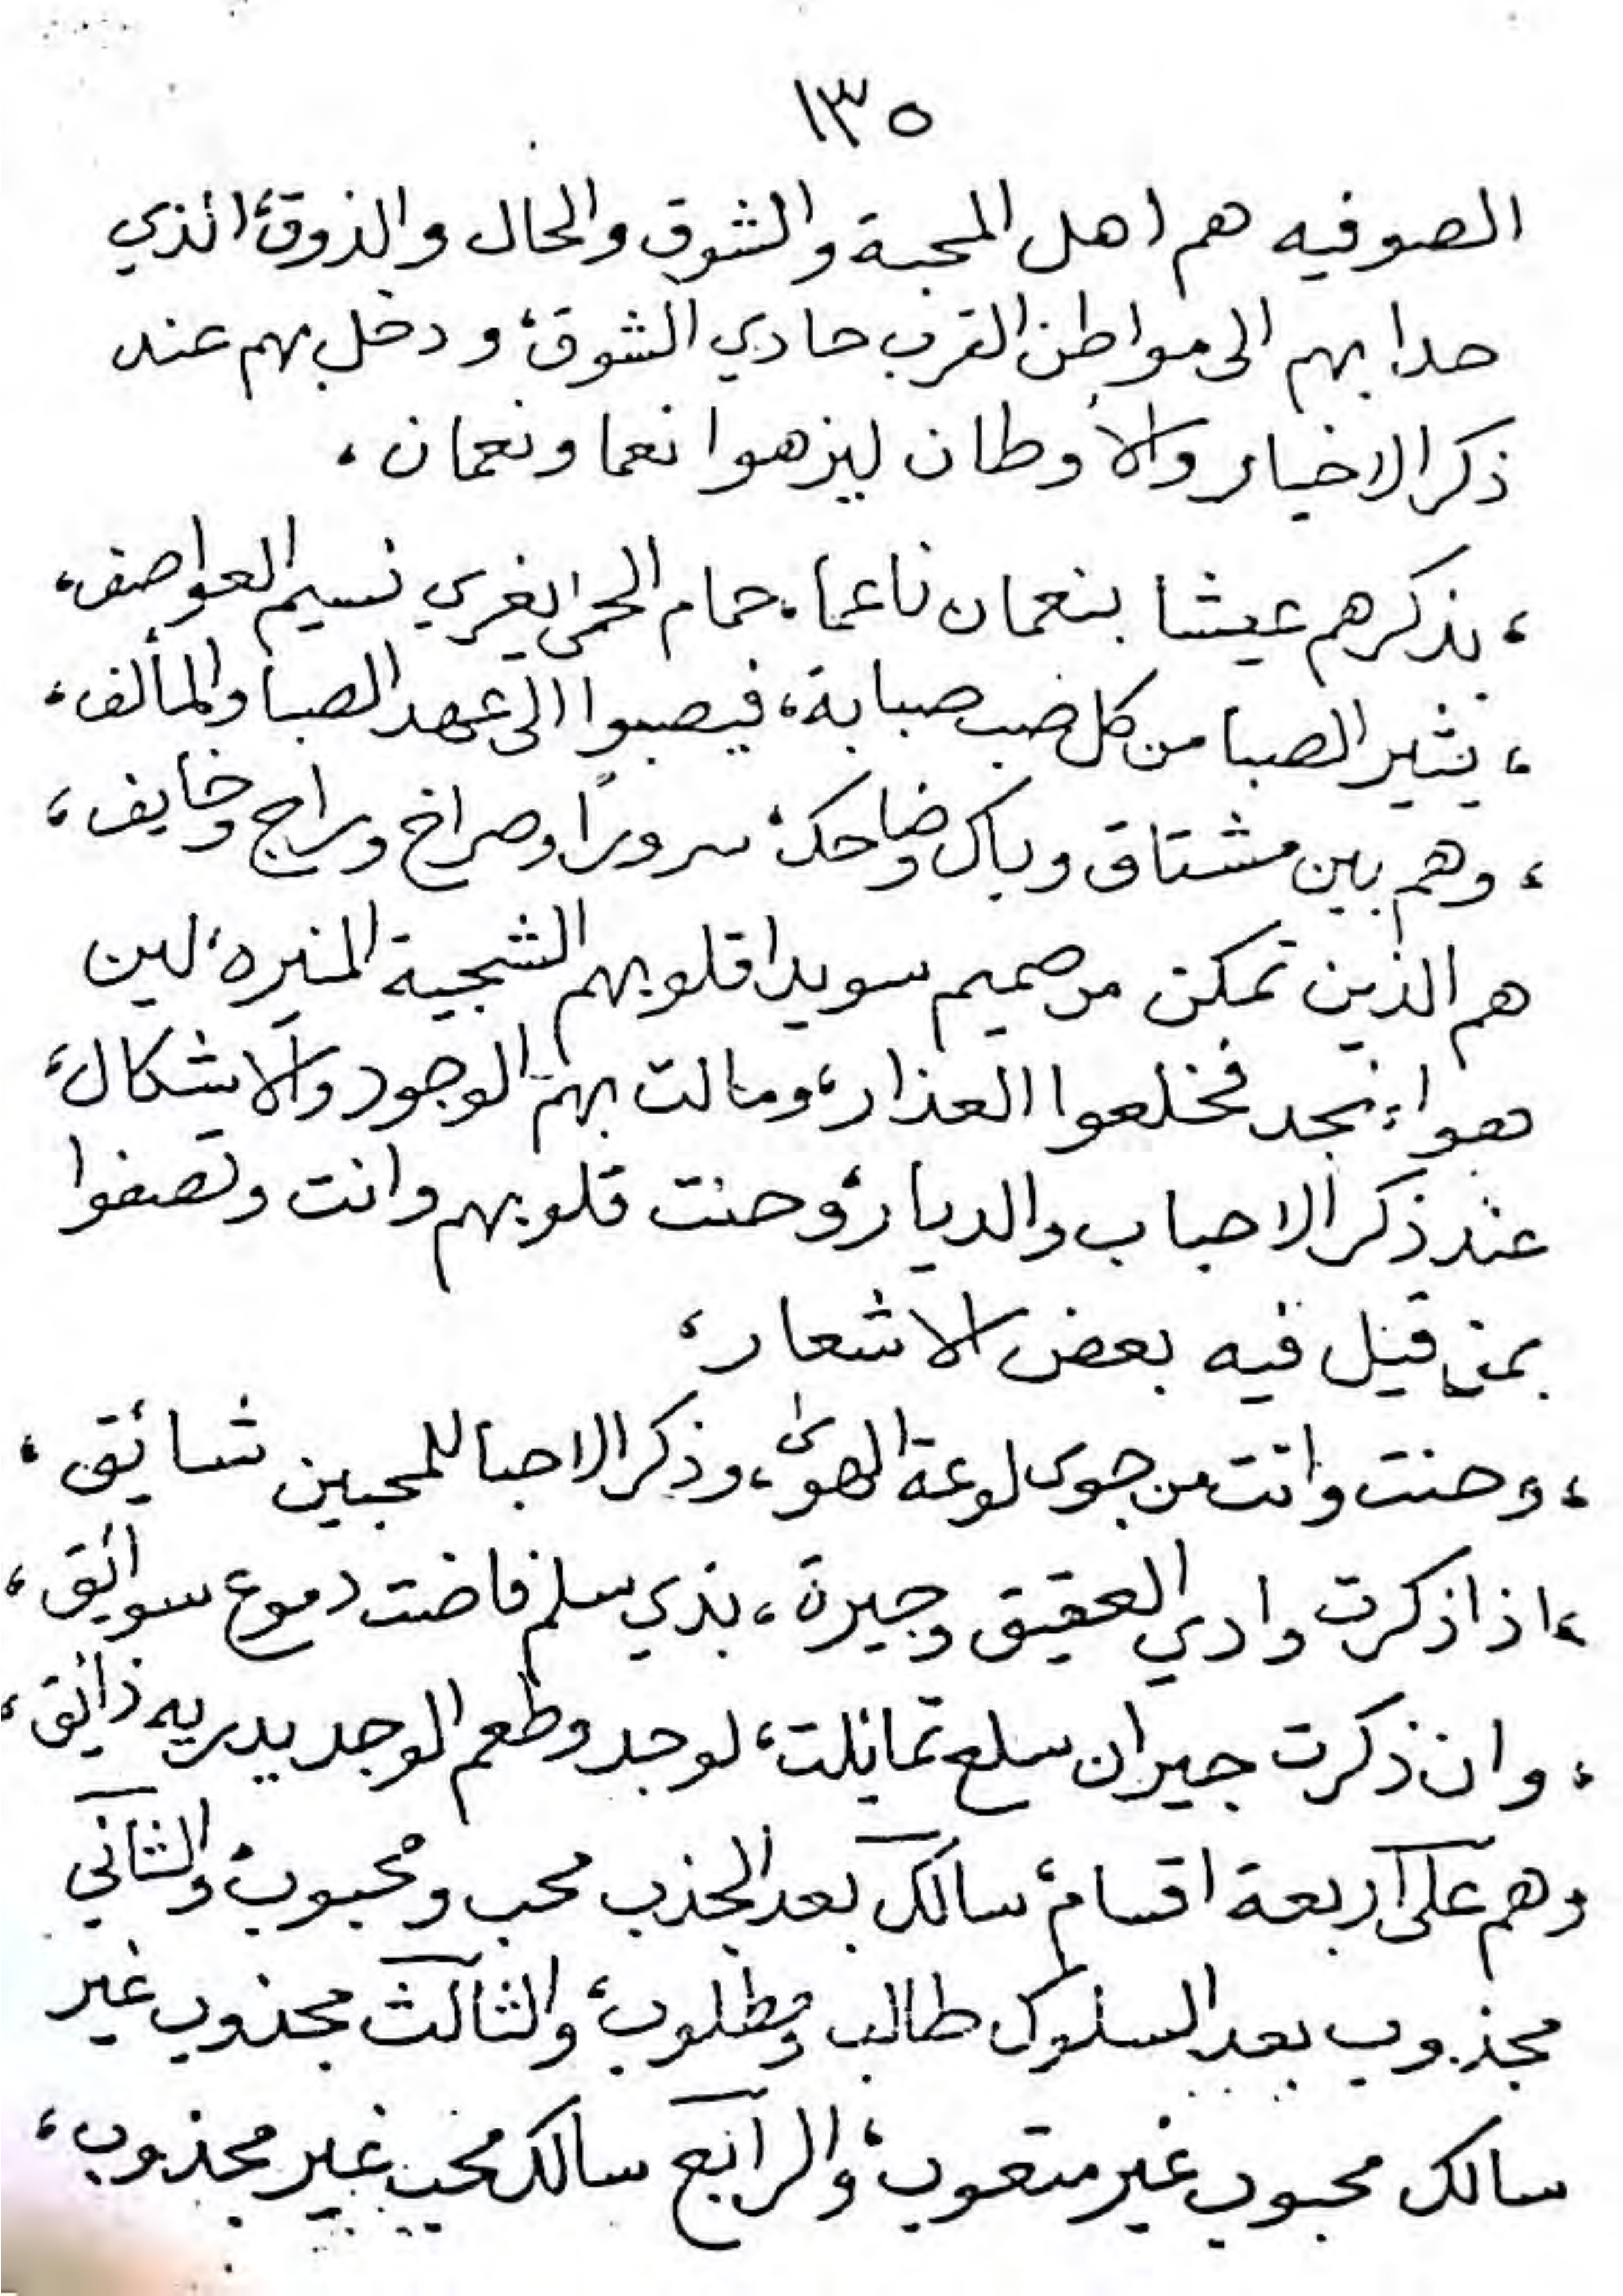 ١٣٥
الصوفيه هم اهل المحبة والشوق والحال والذوق، الذي
حدا بهم الى مواطن القرب حادي الشوق، ودخل بهم عند
ذكر الاخيار والاوطان ليزهوا نعما ونعمان،
، يذكرهم عيشا بنعمان ناعما، حمام الحمى يغري نسيم العواصف،
، يثير الصبا من كل صب صبابة، فيصبوا الى عهد الصبا والمألف،
، وهم بين مشتاق وباك وضاحك، سرورًا وصراخ وراج وخايف،
هم الذين تمكن من صميم سويدا قلوبهم الشجية المنيره، لين
هواء نجد فخلعوا العذار، ومالت بهم الوجود والاشكال،
عند ذكر الاحباب والديار، وحنت قلوبهم وانت وتصفوا
بمن قيل فيه بعض الاشعار،
، وحنت وانت من جوى لوعة الهوى، وذكر الاحبا للمحبين شائق،
، اذا ذكرت وادي العقيق وجيرة، بذي سلم فاضت دموع سوائق،
، وان ذكرت جيران سلع تمائلت، لوجد وطعم الوجد يدريه ذائق،
وهم على اربعة اقسام، سالك بعد الجذب محب ومحبوب، والثاني
مجذوب بعد السلوك طالب ومطلوب، والثالث مجذوب غير
سالك محبوب غير متعوب، والرابع سالك محب غير مجذوب،